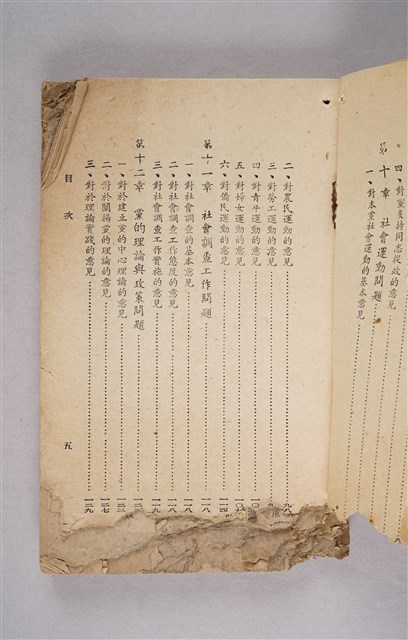 四、對黨支持同志從政的意見
第十章 社會運動問題
一、對本黨社會運動的基本意見
二、對農民運動的意見 九八
三、對勞工運動的意見
四、對青年運動的意見
五、對婦女運動的意見
六、對僑民運動的意見 一一四
第十一章 社會調查工作問題 一一八
一、對社會調查的基本意見 一一八
二、對社會調查工作態度的意見 一一八
三、對社會調查工作實施的意見 一一九
第十二章 黨的理論與政策問題
一、對於建立黨的中心理論的意見
二、對於闡揚黨的理論的意見 一二七
三、對於理論實踐的意見 一二九
目次
五